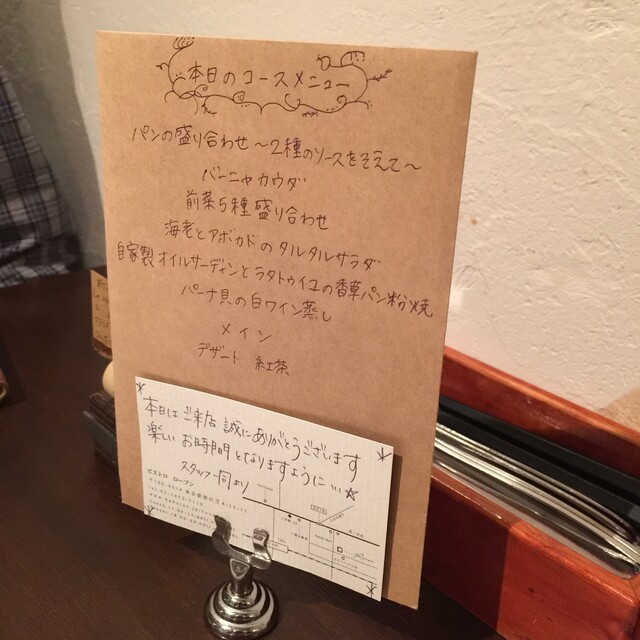 本日のコースメニュー
パンの盛り合わせ〜2種のソースをそえて〜
バーニャカウダ
前菜5種盛り合わせ
海老とアボカドのタルタルサラダ
自家製オイルサーディンとラタトゥイユの香草パン粉焼
パーナ貝の白ワイン蒸し
メイン
デザート 紅茶
本日はご来店誠にありがとうございます
楽しいお時間となりますように…☆
スタッフ一同より
ビストロ ローブン